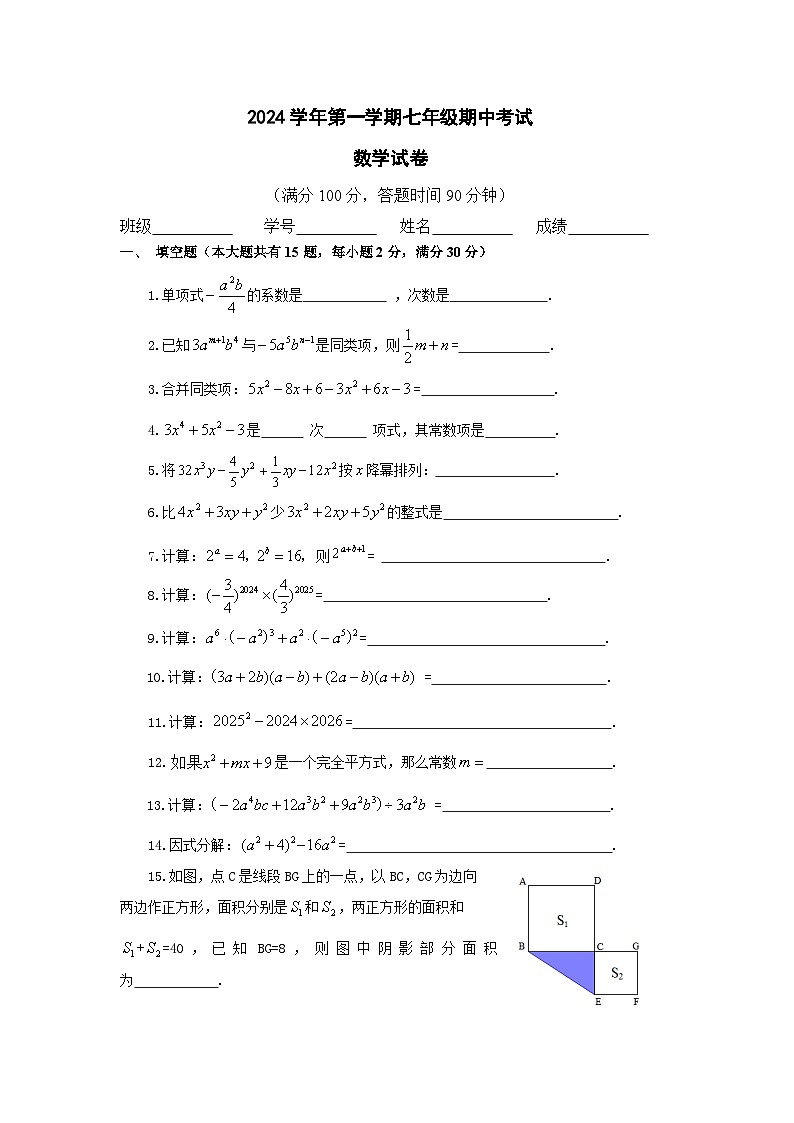 2024学年第一学期七年级期中考试
数学试卷
（满分100分，答题时间90分钟）
班级__________ 学号__________ 姓名__________ 成绩__________
一、 填空题（本大题共有15题，每小题2分，满分30分）
1.单项式$-\frac{a^2b}{4}$的系数是____________ ，次数是______________．
2.已知$3a^{m+1}b^4$与$-5a^5b^{n-1}$是同类项，则$\frac{1}{2}m+n$=_____________．
3.合并同类项：$5x^2-8x+6-3x^2+6x-3$=___________________．
4. $3x^4+5x^2-3$是______ 次______ 项式，其常数项是__________．
5.将$32x^3y-\frac{4}{5}y^2+\frac{1}{3}xy-12x^2$按$x$降幂排列：_________________．
6.比$4x^2+3xy+y^2$少$3x^2+2xy+5y^2$的整式是_________________________．
7.计算：$2^a=4，2^b=16，$则$2^{a+b+1}$= ________________________________．
8.计算：$(-\frac{3}{4})^{2024}\times(\frac{4}{3})^{2025}$=________________________________．
9.计算：$a^6\cdot(-a^2)^3+a^2\cdot(-a^5)^2$=__________________________________．
10.计算：$(3a+2b)(a-b)+(2a-b)(a+b)$ =_________________________．
11.计算：$2025^2-2024\times2026$=_____________________________________．
12. 如果$x^2+mx+9$是一个完全平方式，那么常数$m=$__________________．
13.计算：$(-2a^4bc+12a^3b^2+9a^2b^3)\div3a^2b$ =________________________．
14.因式分解：$(a^2+4)^2-16a^2$=______________________________________．
15.如图，点C是线段BG上的一点，以BC，CG为边向
两边作正方形，面积分别是$S_1$和$S_2$，两正方形的面积和
$S_1$+$S_2$=40，已知BG=8，则图中阴影部分面积
为____________．
A D
S₁
B C G
S₂
E F